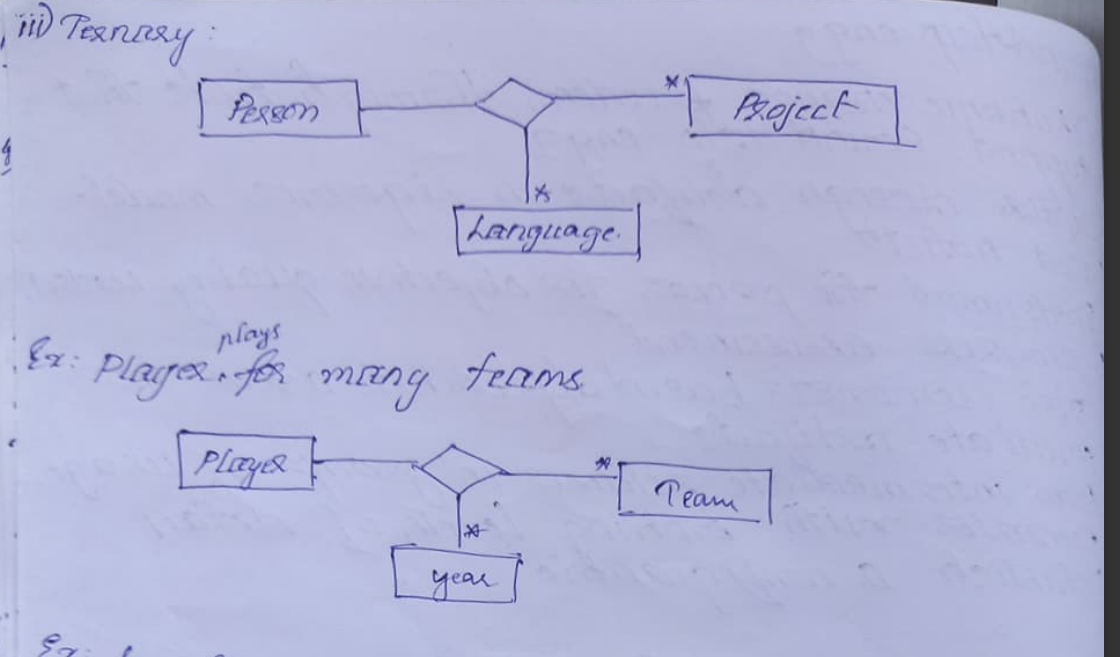 iii) Ternary:
Person
*
Project
*
Language.
plays
Ex: Player for many teams.
Player
*
Team
*
year
Ex: